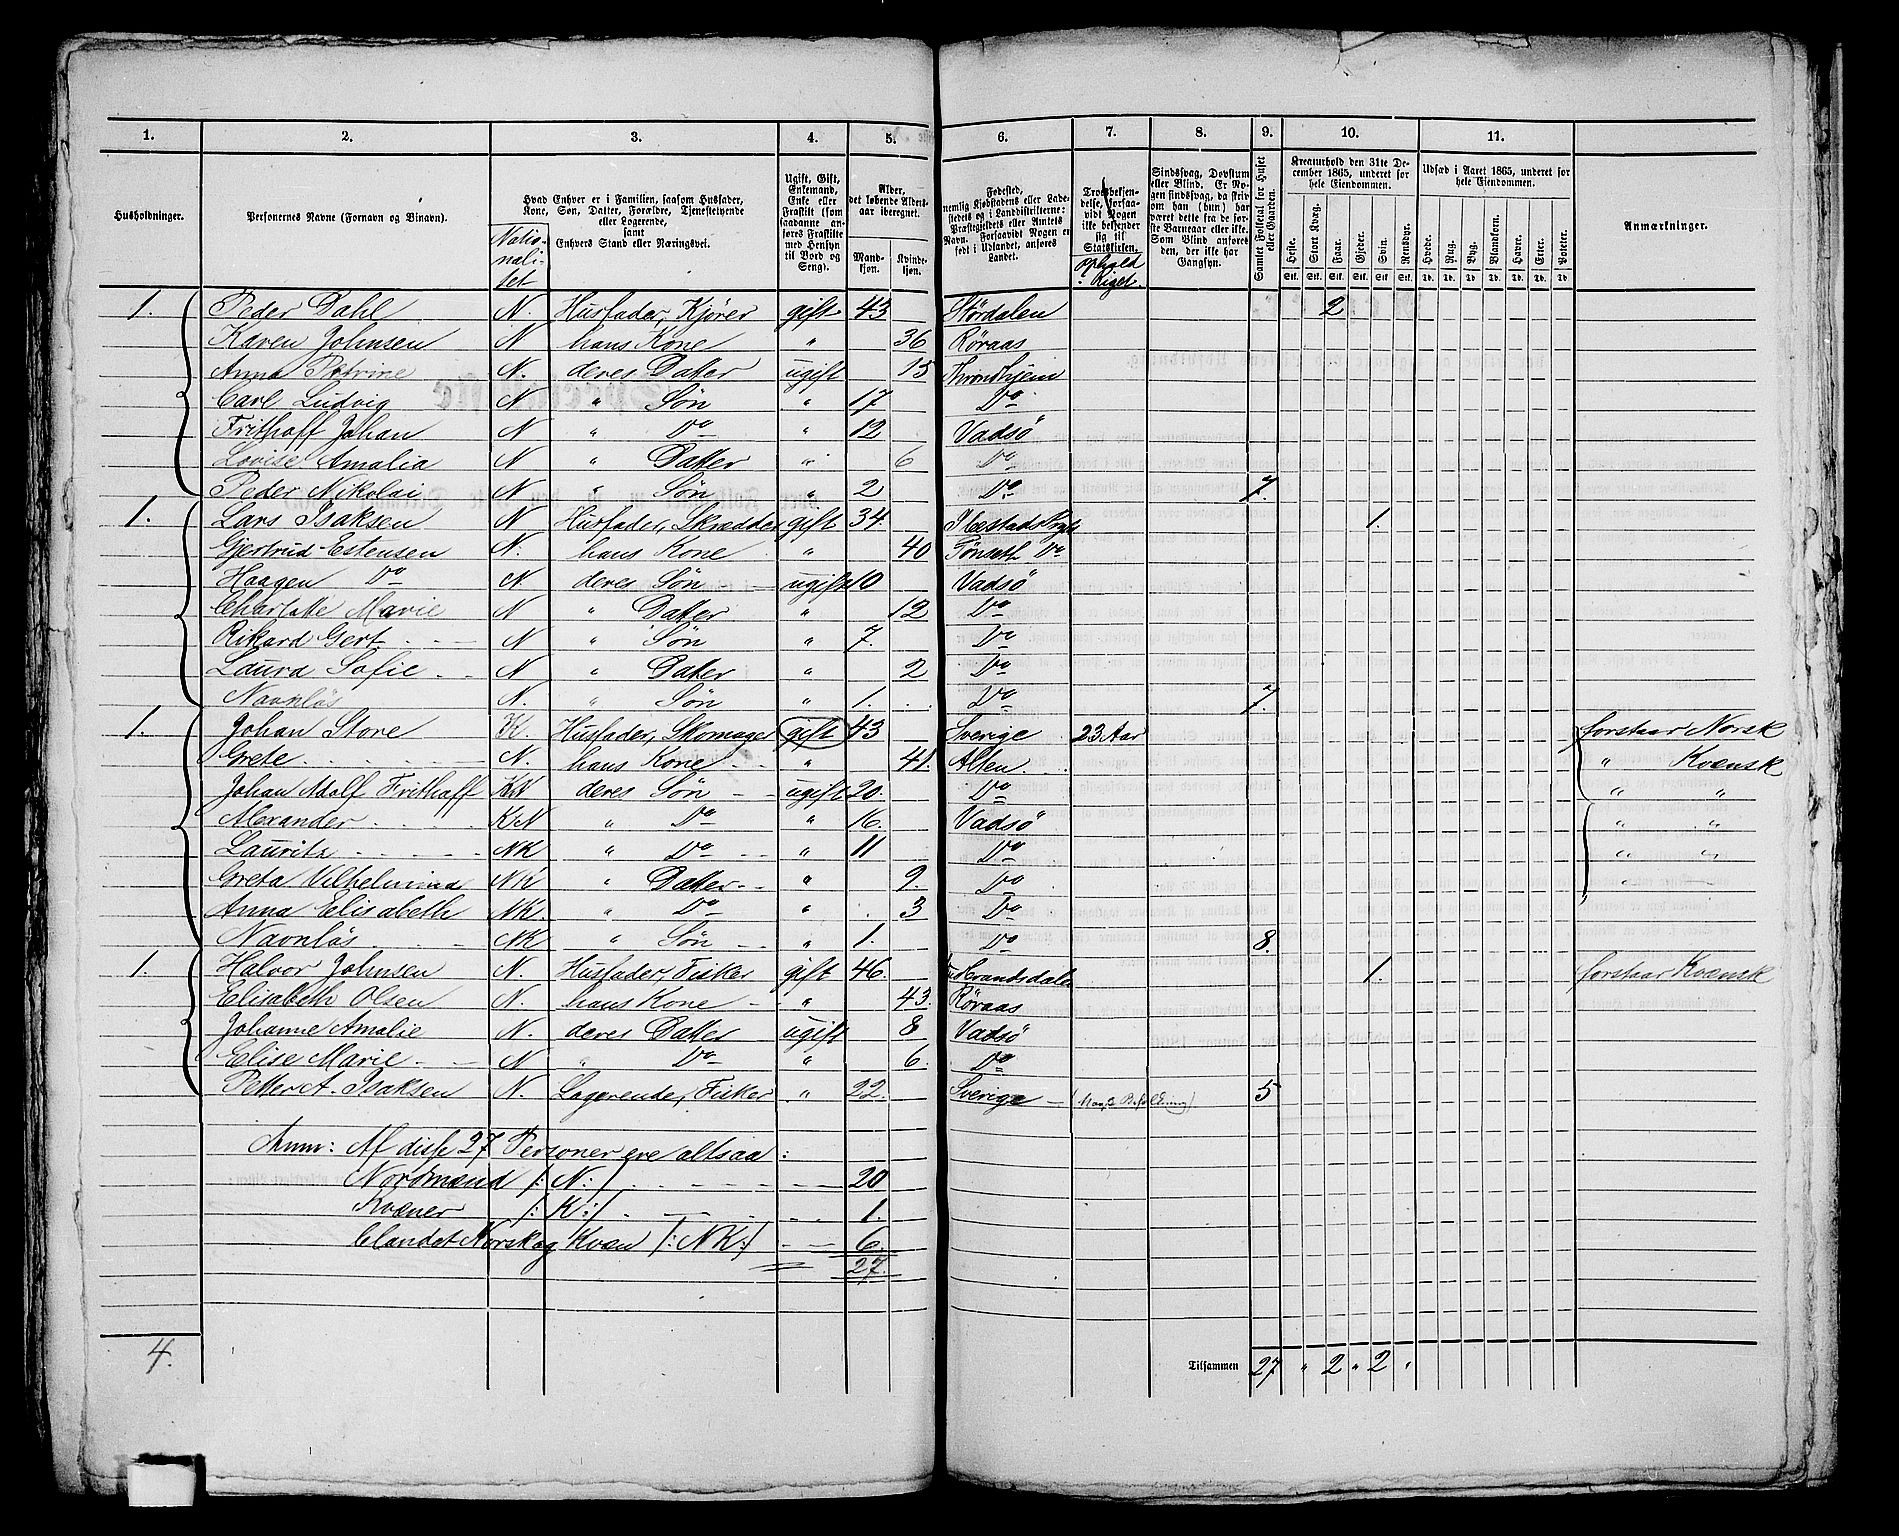 1. 2. 3. 4. 5. 6. 7. 8. 9. 10. 11.
Husholdninger.
Personernes Navne (Fornavn og Binavn).
Hvad Enhver er i Familien, saasom Husfader, Kone, Søn, Datter, Forældre, Tjenestetyende eller Logerende, samt Enhvers Stand eller Næringsvei.
Natio-
nali-
tet
Ugift, Gift, Enkemand, Enke eller Fraskilt (som saadanne anføres Fraskilte med Hensyn til Bord og Seng).
Alder, det løbende Alders- aar iberegnet.
Mand- kjøn.
Kvinde- kjøn.
Fødested, nemlig Kjøbstadens eller Ladestedets og i Landdistrikterne: Præstegjeldets eller Amtets Navn. Forsaavidt Nogen er født i Udlandet, anføres Landet.
Troesbekjendelse, forsaavidt Nogen ikke bekjender sig til Statskirken.
ophold
i Riget
Sindssvag, Døvstum eller Blind. Er Nogen sindssvag, da skrives om han (hun) har været dette fra de første Barneaar eller ikke. Som Blind anføres den, der ikke har Gangsyn.
Samlet Folketal for Huset eller Gaarden.
Kreaturhold den 31te December 1865, underet for hele Eiendommen.
Heste. Stort Kvæg. Faar. Gjeder. Svin. Rensdyr.
Stk. Stk. Stk. Stk. Stk. Stk.
Udsæd i Aaret 1865, underet for hele Eiendommen.
Hvede. Rug. Byg. Blandkorn. Havre. Erter. Poteter.
Td. Td. Td. Td. Td. Td. Td.
Anmærkninger.
1. Peder Dahl N. Husfader, Kjører gift 43 Størdalen 2
Karen Johnsen N hans Kone " 36 Røraas
Anna Petrine N. deres Datter ugift 15 Throndhjem
Carl Ludvig N " Søn " 17 Do
Frithoff Johan N " Do " 12 Vadsö
Lovise Amalia N " Datter " 6 Do
Peder Nikolai N " Søn " 2 Do 7.
1. Lars Isaksen N Husfader, Skrædder gift 34. Ibestads 1.
Gjertrud Estensen N. hans Kone " 40 Tønseth Do
Haagen Do N. deres Søn ugift 10 Vadsö
Charlotte Marie N " Datter " 12 Do
Rikard Gert N " Søn " 7. Do
Laura Sofie N " Datter " 2 Do
Navnløs N. " Søn " 1. Do 7.
1. Johan Store K. Husfader, Skomager gift 43 Sverige 23 Aar forstaar Norsk
Grete N. hans Kone " 41. Alten " Kvænsk
Johan Adolf Frithoff KN deres Søn ugift 20. Do " "
Alexander KN " Do " 16. Vadsö " "
Lauritz NK " Do " 11 Do " "
Greta Vilhelmina NK " Datter " 9. Do "
Anna Elisabeth NK. " Do " 3 Do
Navnløs NK " Søn " 1. Do 8.
1. Halvor Johnsen N. Husfader, Fisker gift 46. 1. forstaar Kvænsk
Elisabeth Olsen N. hans Kone " 43. Røraas
Johanne Amalie N. deres Datter ugift 8 Vadsö
Elise Marie N " Do " 6. Do
Petter A. Isaksen N. Logerende, Fisker " 22. Sverige 5
Anm: Af disse 27 Personer ere altsaa:
Nordmænd /: N:/ 20
Kvæner /: K:/ 1.
blandet Norsk og Kvæn /: NK:/ 6.
27.
4.
Tilsammen 27 " 2 " 2 "